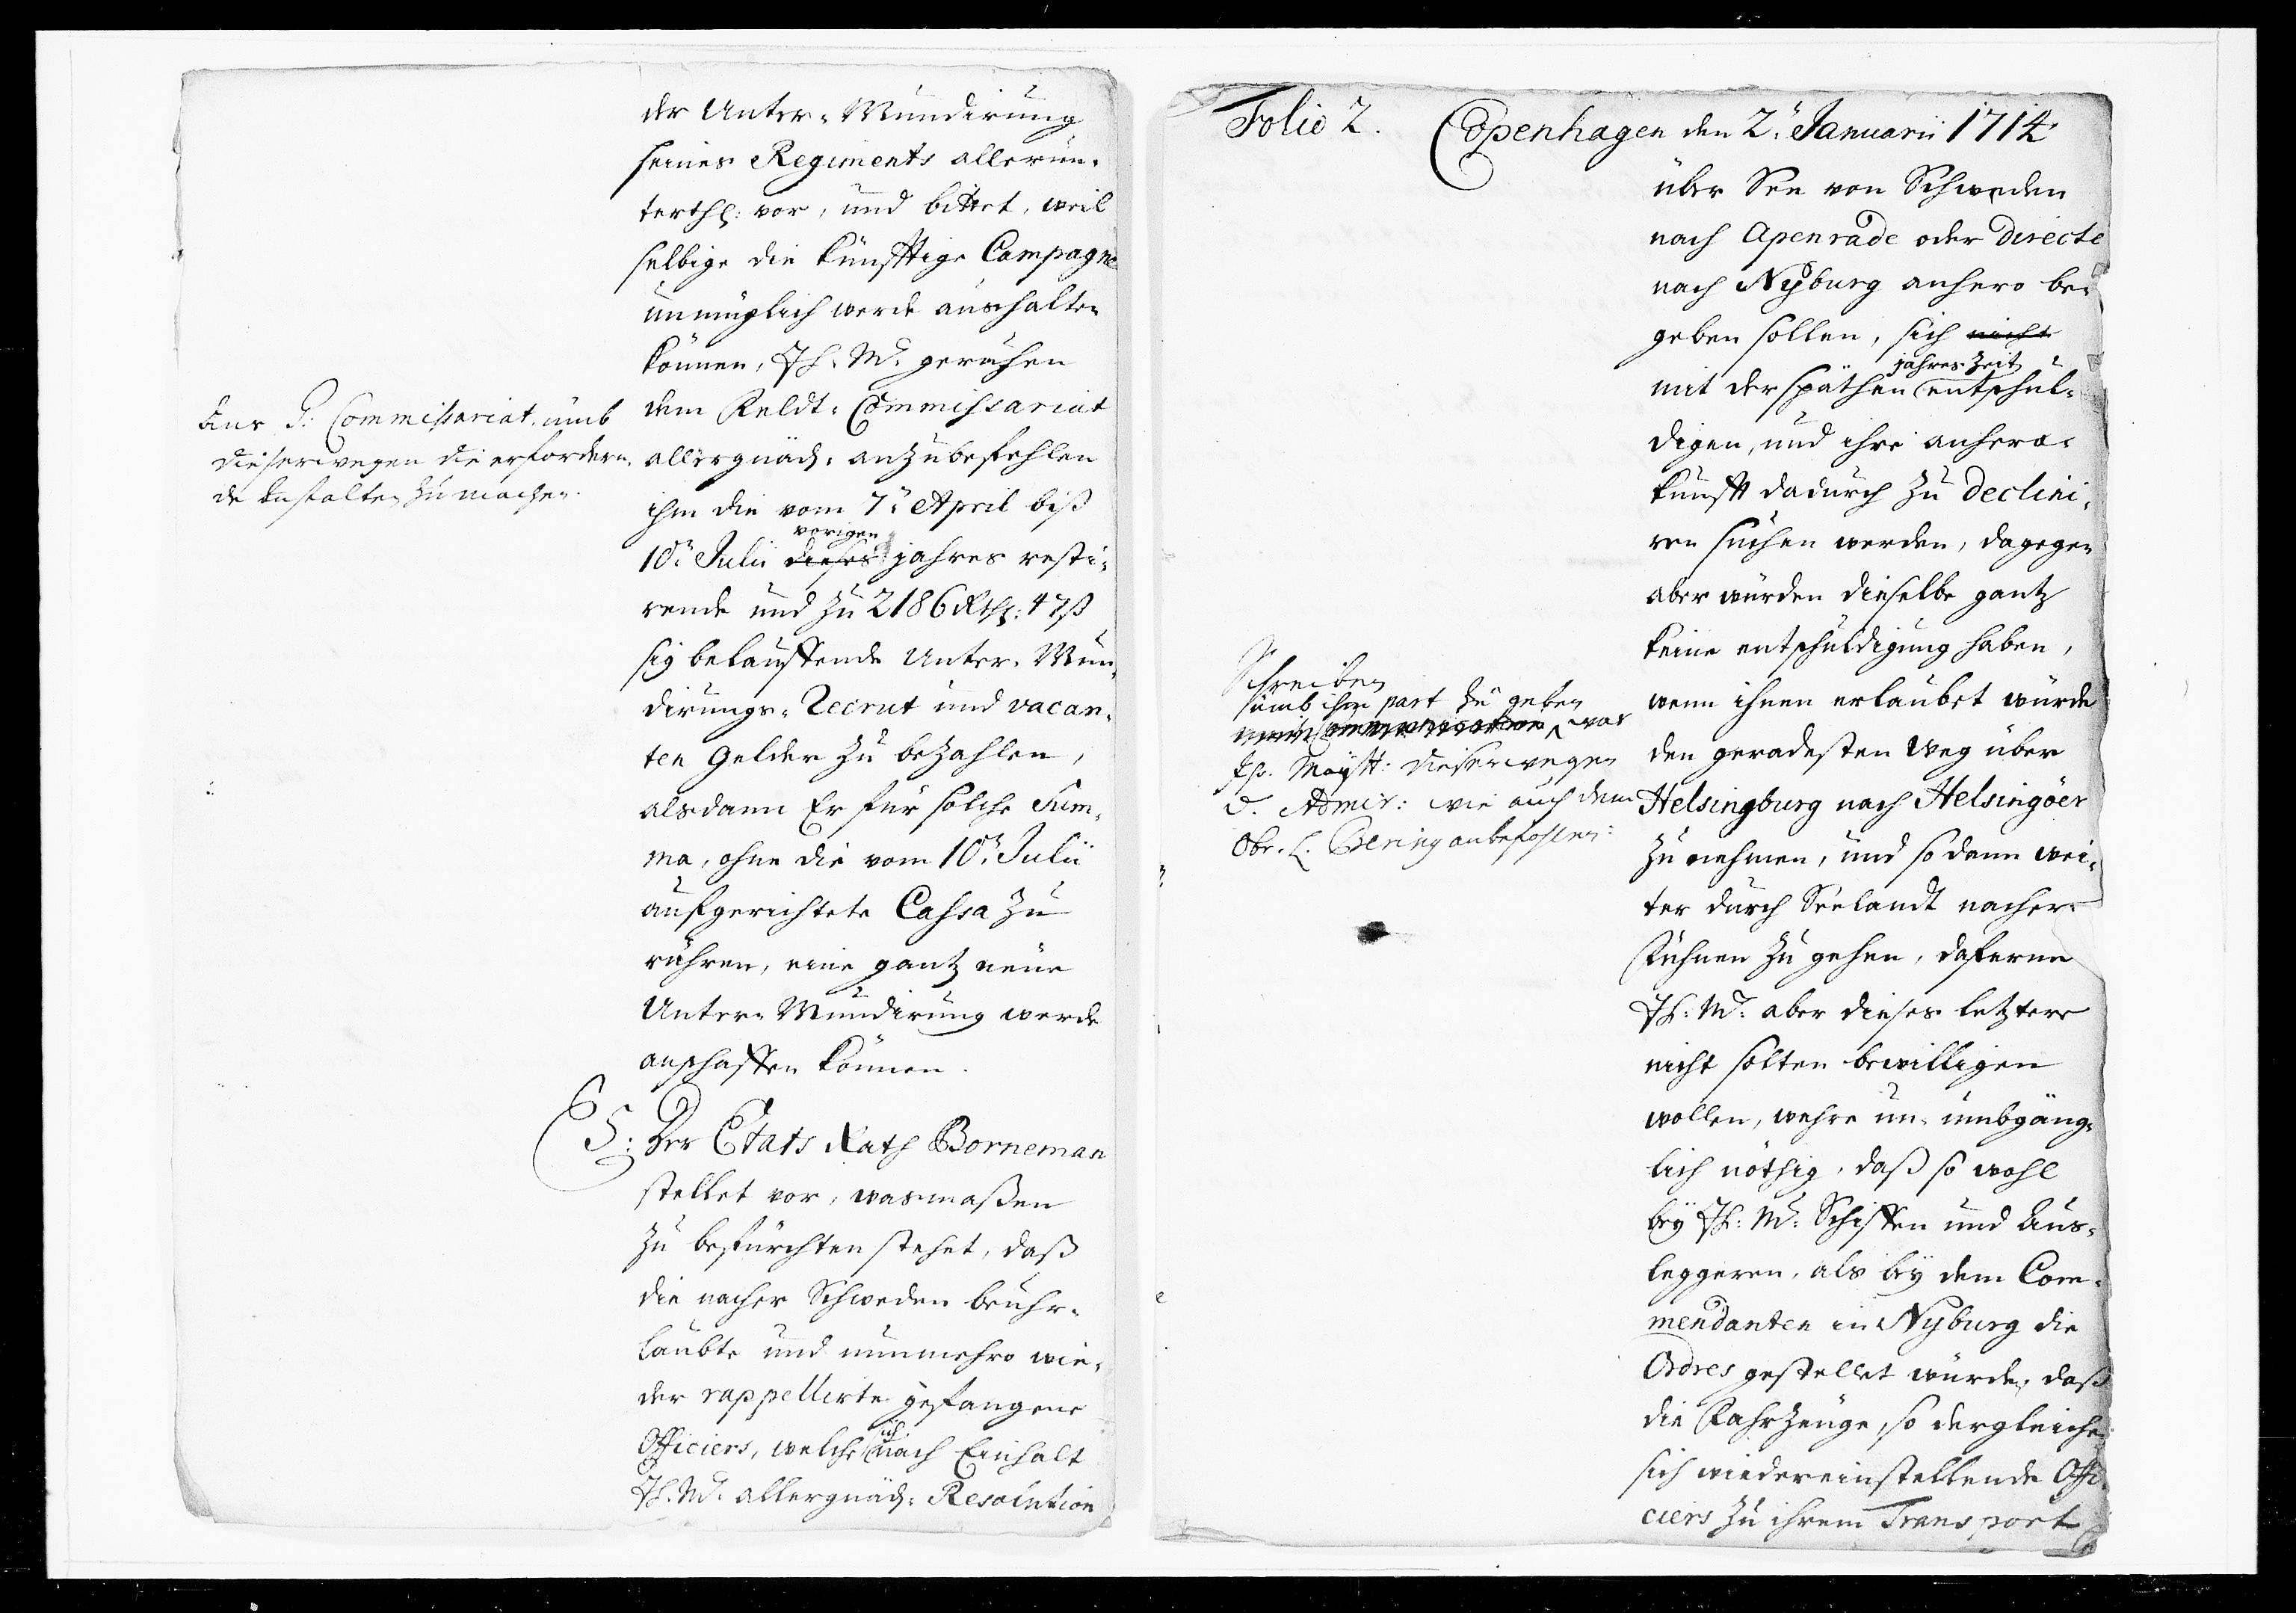 der Unter-Mundirung
seines Regiments allerun-
terthl: vor, und bittet, weil
selbige die künfftige Campagne
unmüglich werde aushalten
können, Ih: M: geruhen
dem Feldt-Commissariat
allergnäd: anzubefehlen
ihm die vom 7: April biß
vorigen
10: Julii dieses jahres resti-
rende und zu 2186 Rthl: 47ß
sig belauffende Unter-Mun-
dirungs-Recrut und vacan-
ten Gelder zu bezahlen,
alsdann Er für solche Sum-
ma, ohne die vom 10: Julii
aufgerichtete Cassa zu
rühren, eine gantz neue
Unter-Mundirung werde
anschaffen können.
Ans G: Commissariat umb
dieserwegen die erfordern-
de Anstalten zu machen.
5: Der Etats Rath Borneman
stellet vor, wasmaßen
zu befürchten stehet, daß
die nacher Schweden beuhr-
laubte und nunmehro wie-
der rappellirte gefangene
Officiers, welche sich nach Einhalt
Ih: M: allergnäd: Resolution
Folio 2. Copenhagen den 2: Januarii 1714
über See von Schweden
nach Apenrade oder directe
nach Nyburg anhero be-
geben sollen, sich nicht
jahres Zeit
mit der späthen entschul-
digen, und ihre anhero-
kunfft dadurch zu declini-
ren suchen werden, dagegen
aber würden dieselbe gantz
keine entschuldigung haben,
wenn ihnen erlaubet würde
den geradesten Weg über
Helsingburg nach Helsingöer
zu nehmen, und so dann wei-
ter durch Seelandt nacher
Fühnen zu gehen, daferne
Ih: M: aber dieses letztere
nicht solten bewilligen
wollen, wehre un-umbgäng-
lich nöthig, daß so wohl
bey Ih: M: Schiffen und Aus-
leggeren, als bey dem Com-
mendanten in Nyburg die
Ordres gestellet würde, daß
die Fahrzeuge, so dergleichen
sich wiedereinstellende Offi-
ciers zu ihrem Transport
Schreiben
umb ihm part zu geben
was
Ihr. Maytt: dieserwegen
d. Admir: wie auch dem
Obr. L. Bering anbefohlen: